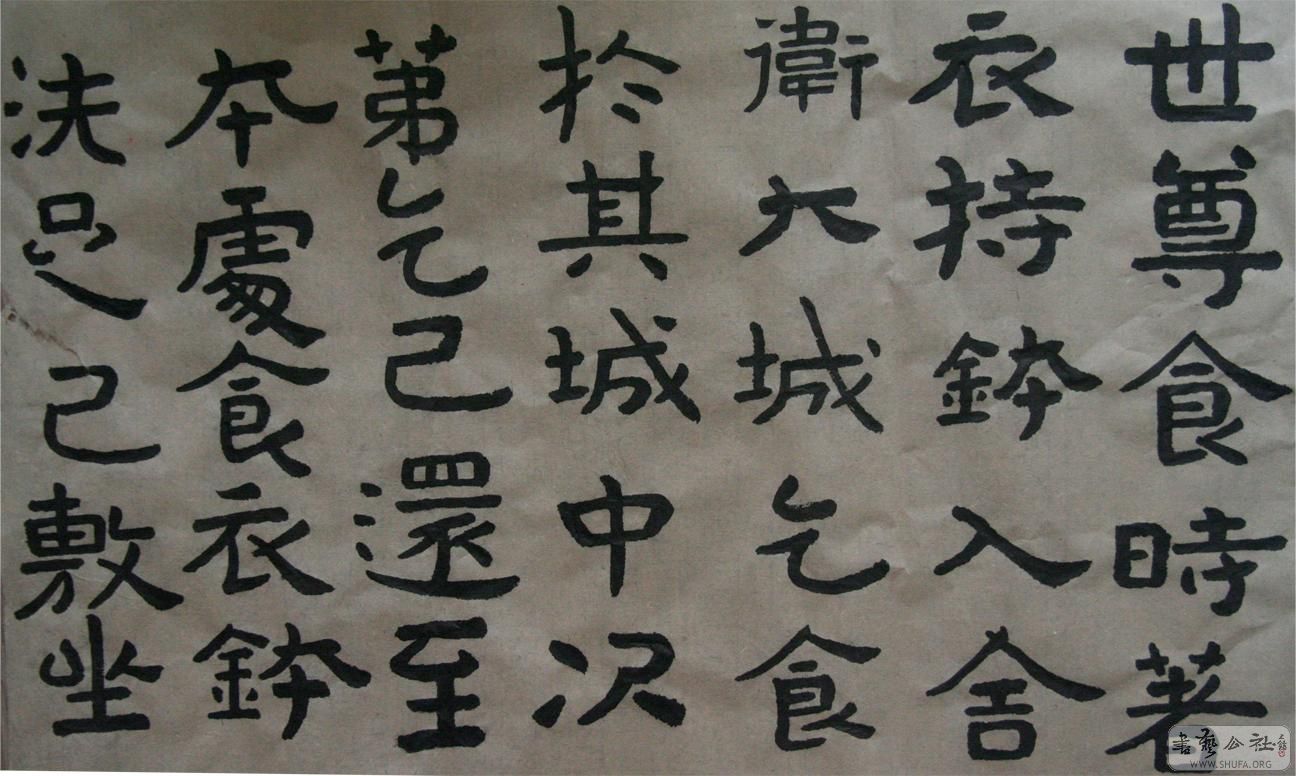 世尊食時著
衣持鉢入舍
衛大城乞食
於其城中次
苐乞己還至
夲處食衣鉢
洗足己敷坐
書藝公社
WWW.SHUFA.ORG